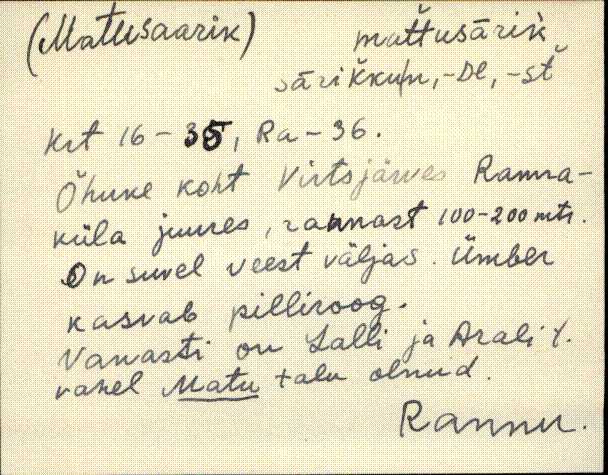 (Matusaarik) mattusärik
särikkun, -De, -st
Krt 16-35, Ra-36.
Õhuke koht Virtsjärves Ranna-
küla juures, rannast 100-200 mtr.
On suvel veest väljas. Ümber
kasvab pilliroog.
Vanasti on Lalli ja Arali t.
vahel Matu talu olnud.
Rannu.